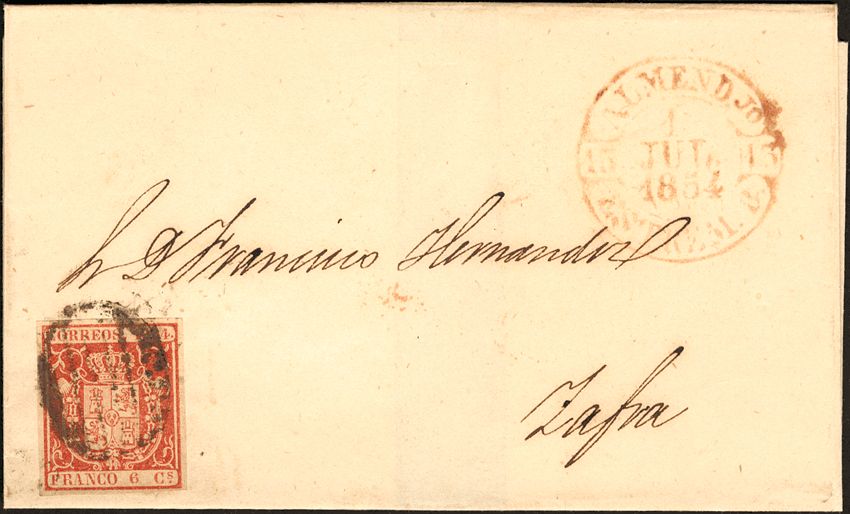 ALMENDJO
1
JUL
1854
13 13
ESTREM. B.
Sr D. Francisco Hernandez
Zafra
CORREOS 1854.
FRANCO 6 Cs